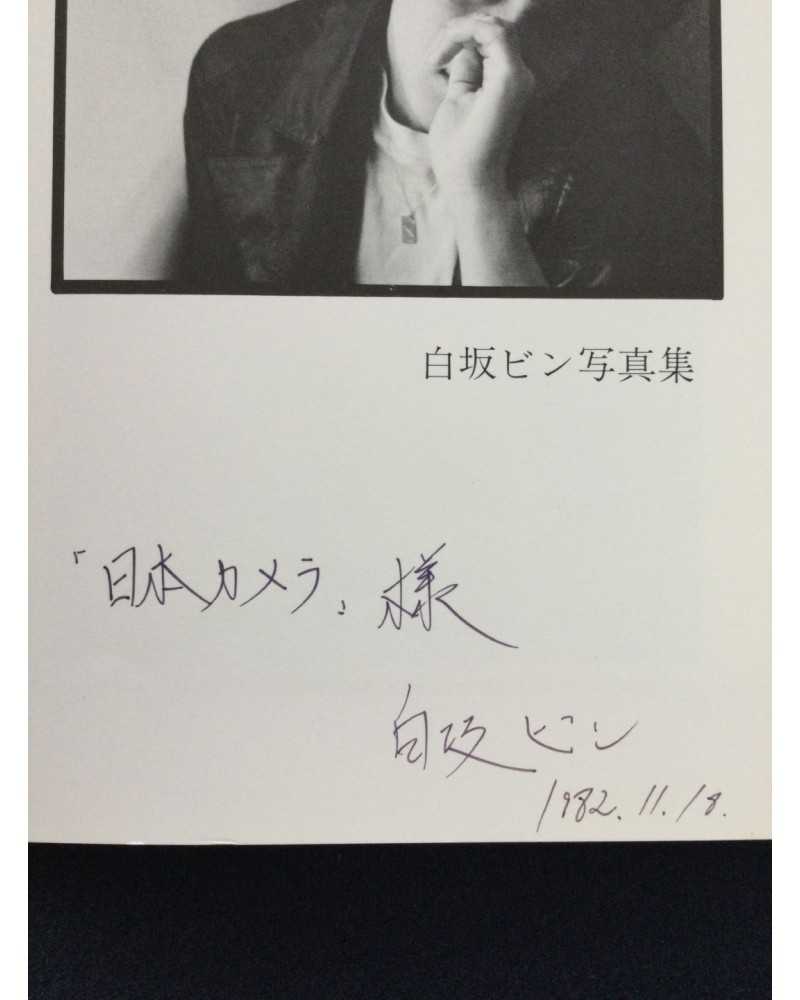 白坂ビン写真集
「日本カメラ」様
白坂ビン
1982.11.18.